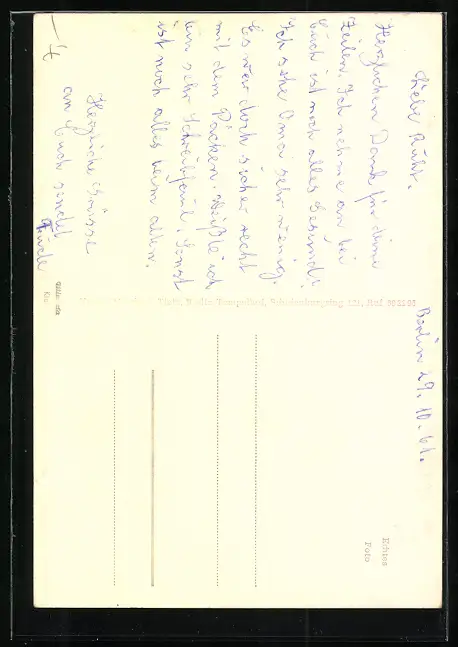 Berlin 29. 10. 61.
Liebe Ruth.
Herzlichen Dank für deine
Zeilen. Ich nehme an bei
Euch ist noch alles Gesund.
Ich sehe Omai sehr wenig.
Es war doch sicher recht
mit dem Päcken. Weißte ich
bin sehr Schreibfaul. Sonst
ist noch alles beim alten.
Herzliche Grüsse
an Euch sendet
Berlin-Tempelhof, Schulenburgring 121, Ruf
Echtes
Foto